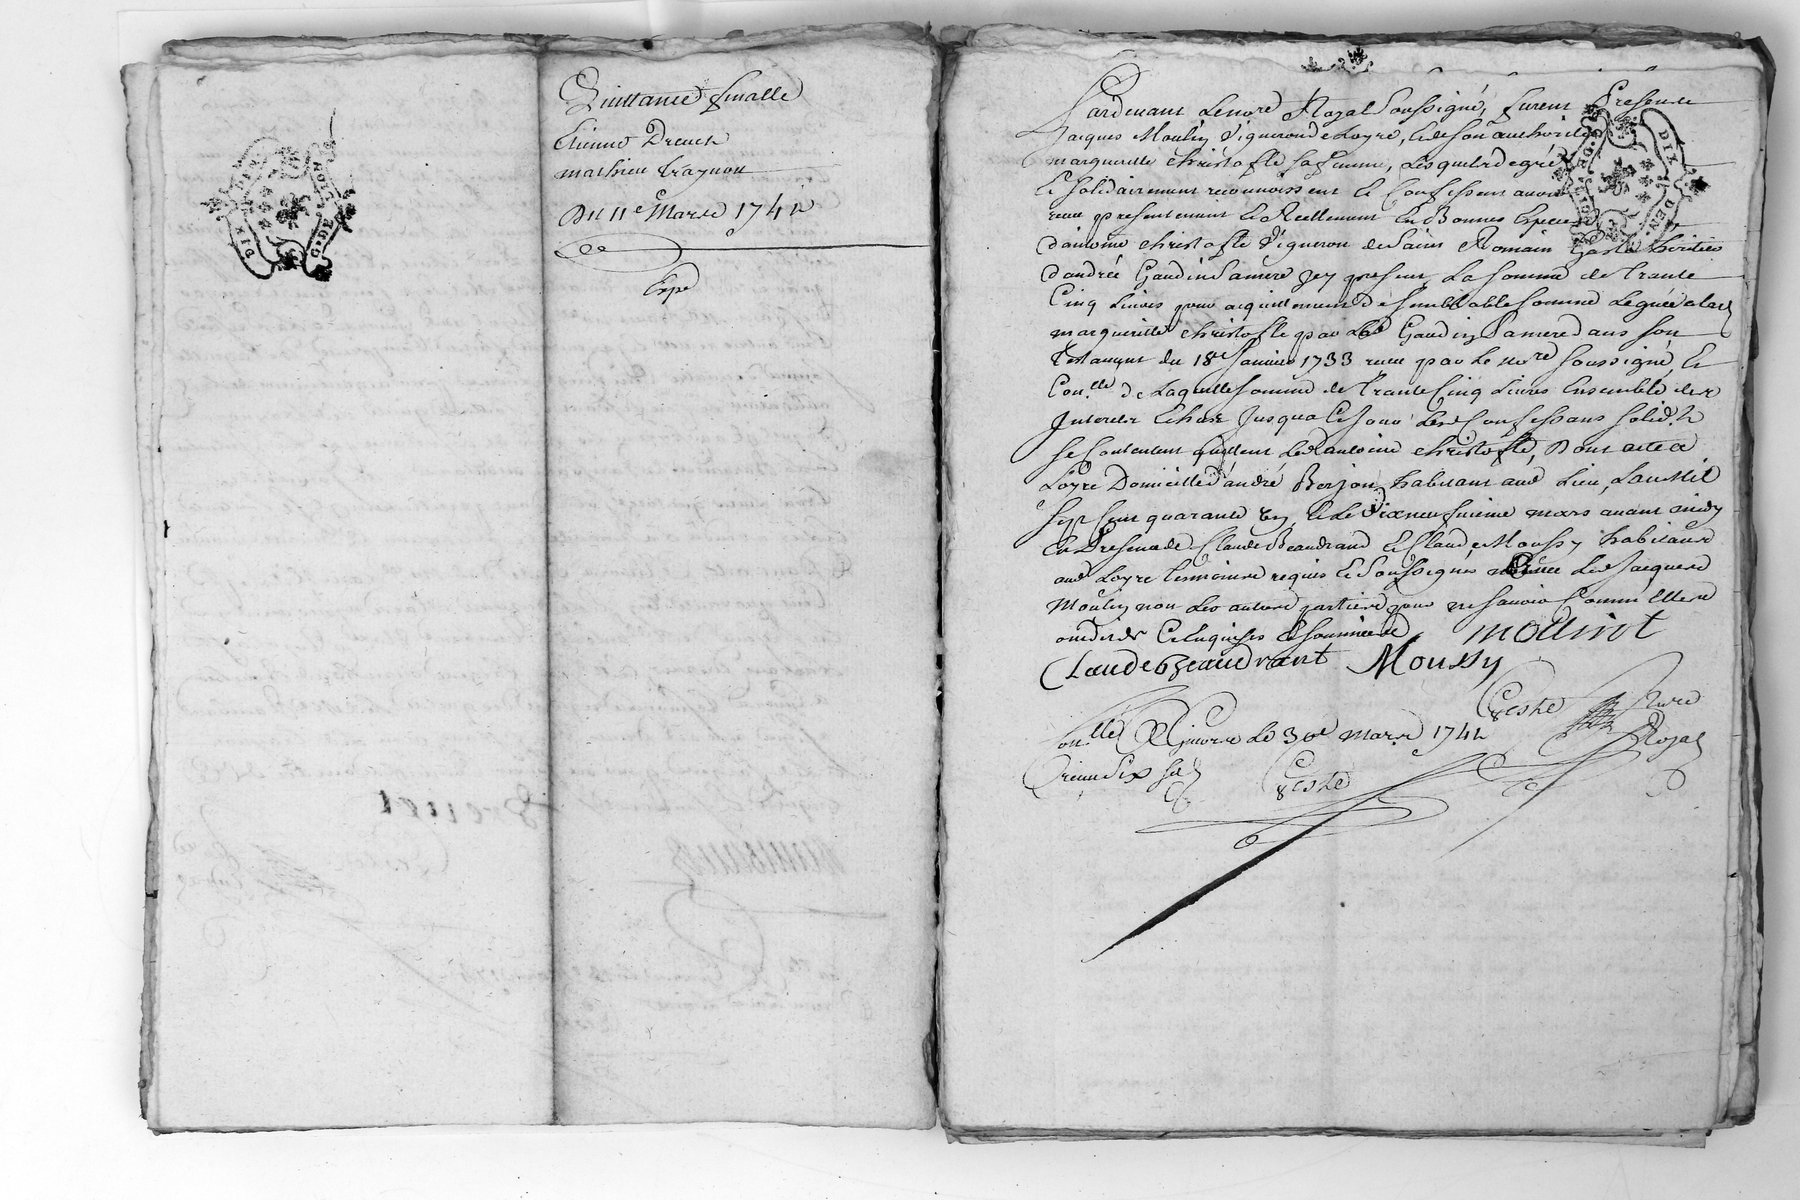 Quittance finalle
Etienne Drevet
mathieu traynou
Du 11e Mars 1741
Expé
DIX DEN
G. DE LION
Pardevant Lenore Royal Soussigné, furent Presents
Jacques Moulin Vigneron de Loyre, et de son authorité
marguerite christofle sa femme, Lesquels de gré
et solidairement reconnoissent et Confessent avoir
receu presentement et Reellement En Bonnes Especes
d'antoine christofle Vigneron de Saint Romain heritier
d'andrée Gaudin Sa mere icy present, La somme de trante
Cinq Livres pour acquittement de semblable somme Leguée a lad
marguerite christofle par Lad Gaudin Sa mere dans son
Testament du 18e Janvier 1733 receu par le nore soussigné, Et
Con.lle De Laquelle somme de trante Cinq Livres Ensemble des
Interets Echus Jusqua Ce Jour Lesd Confessans solid.t
se Contentent quittent Led antoine christofle, Dont acte a
Loyre Domicille d'andré Berjon habitant aud Lieu, Lan Mil
sept Cent quarante Un, et Le Dixneufvieme mars avant midy
En Presence de Claude Beaudrand et Claude Moussy habitans
aud Loyre temoins requis et soussignes avec Led Jacques
Moulin non Les autres parties pour ne scavoir Comme Elles
ont dit de Ce Enquises et sommées
moulin
Claude Beaudrant Moussy
Geste Nore
Royal
Con.lle A Givors Le 30e mars 1741
Receu six sols
Geste